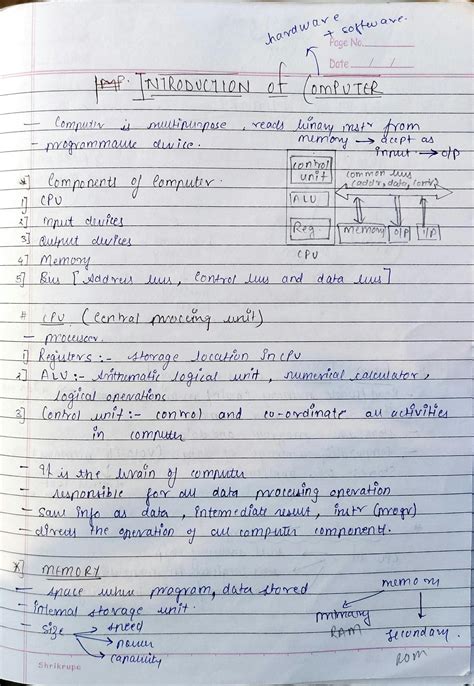 hardware
+ software.
Page No.
Date / /
Imp. INTRODUCTION of COMPUTER
- Computer is multipurpose, reads binary instr from
- programmable device. memory → acept as
input → o/p
*] Components of Computer.
1] CPU
2] Input devices
3] Output devices
4] Memory
5] Bus [Address bus, Control bus and data bus]
control
unit
ALU
Reg
CPU
common bus
(addr, data, contr)
memory
O/P
I/P
# CPU (Central procecing unit)
- processor.
1] Registers :- storage location in CPU
2] ALU :- Arithmatic logical unit, numerical calculator,
logical operations
3] Control unit :- control and co-ordinate all activities
in computer
- It is the brain of computer
- responsible for all data processing operation
- Save info as data, intemediate result, instr (progr)
- directs the operation of all computer component.
*] MEMORY
- space where program, data stored
- internal storage unit.
- size
speed
power
capacity
memory
primary
RAM
secondary
ROM
Shrikrupa